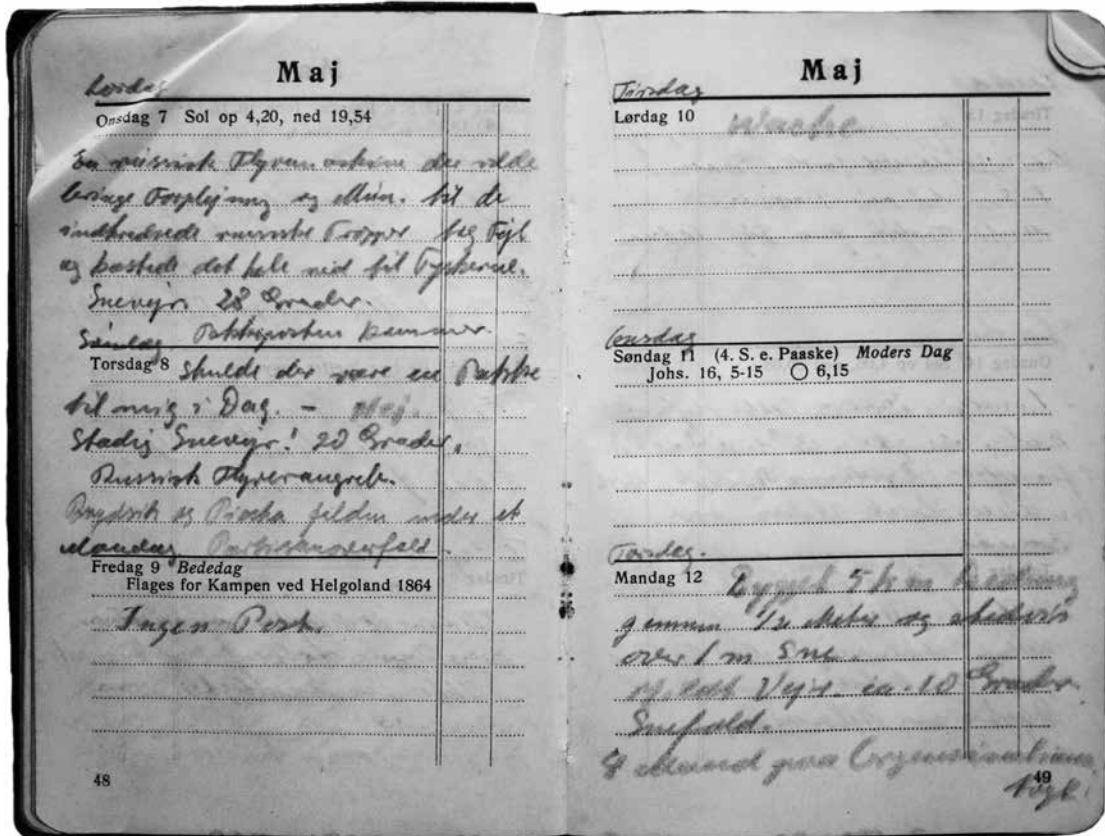 Maj
Lørdag
Onsdag 7 Sol op 4,20, ned 19,54
En russisk Flyvemaskine der vilde
bringe Forplejning og Mun. til de
indkredsede russiske Tropper tog Fejl
og kastede det hele ned til Tyskerne.
Snevejr. 28 Grader.
Søndag Pakkeposten kommer.
Torsdag 8 skulde der være en Pakke
til mig i Dag. - Nej.
Stadig Snevejr! 20 Grader.
Russisk Flyverangreb.
og falden under et
Mandag Partisanoverfald.
Fredag 9 Bededag
Flages for Kampen ved Helgoland 1864
Ingen Post.
48
Maj
Tirsdag
Lørdag 10 Wache
Onsdag
Søndag 11 (4. S. e. Paaske) Moders Dag
Johs. 16, 5-15 ○ 6,15
Torsdag.
Mandag 12 Bygget 5 km
gennem 1/2 Meter og stedvis
over 1 m Sne.
Vejr. ca. 10 Grader.
Snefald.
8 Mand paa
49